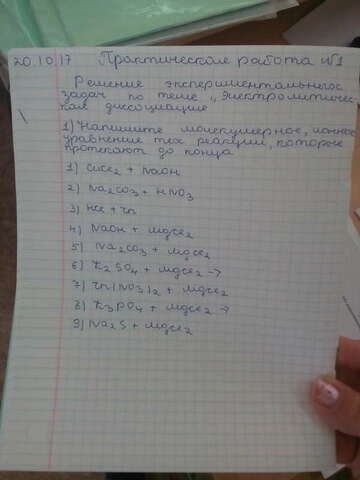 20.10.17 Практическая работа №1
Решение экспериментальных
задач по теме „Электролитичес-
кая диссоциация
1) Напишите молекулярное, ионное
уравнение тех реакций, которые
протекают до конца
1) CuCl2 + NaOH
2) Na2CO3 + HNO3
3) HCl + Zn
4) NaOH + MgCl2
5) Na2CO3 + MgCl2
6) K2SO4 + MgCl2 →
7) Zn(NO3)2 + MgCl2
8) K3PO4 + MgCl2 →
9) Na2S + MgCl2